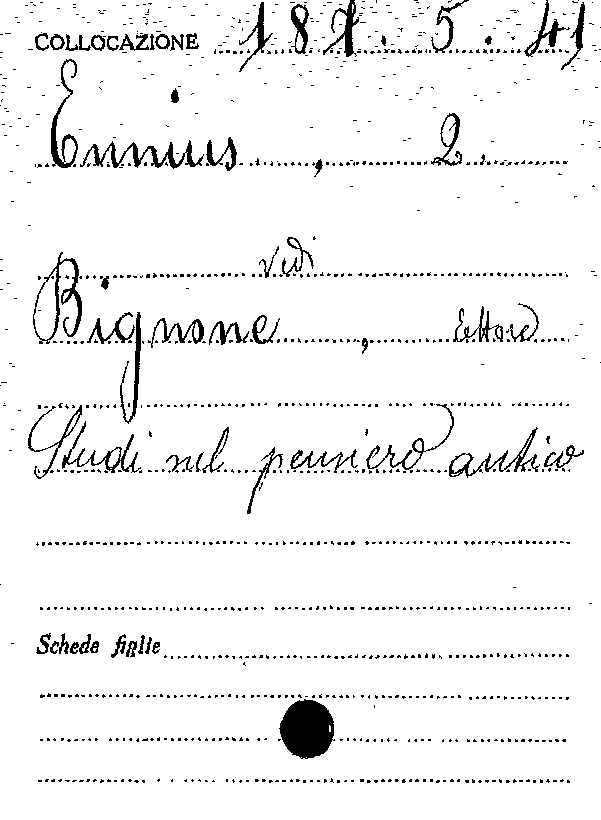 COLLOCAZIONE 187. 5. 41
Ennius, Q.
vedi
Bignone, Ettore
Studi nel pensiero antico
Schede figlie